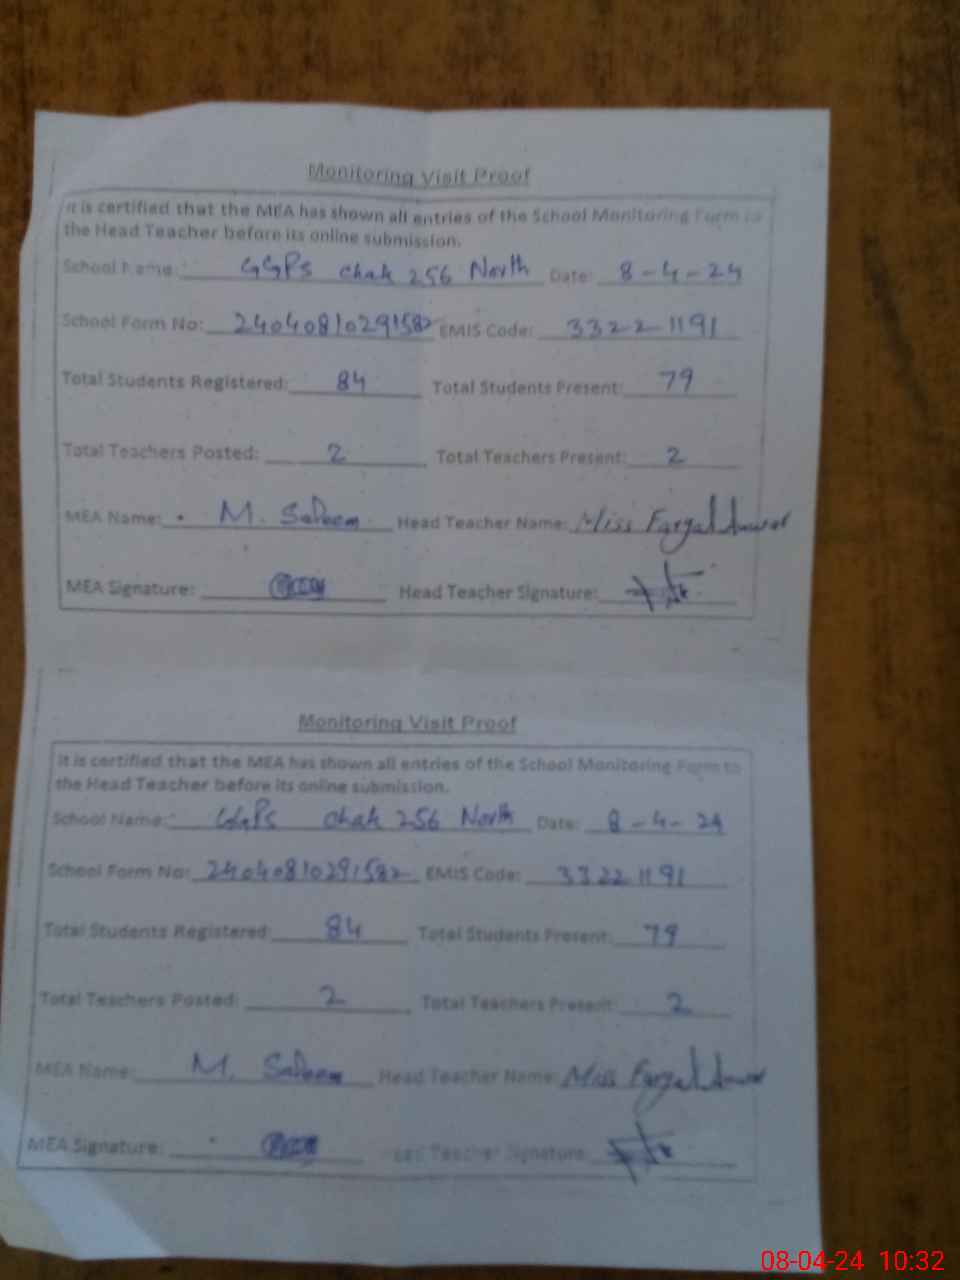 Monitoring Visit Proof
It is certified that the MEA has shown all entries of the School Monitoring Form to
the Head Teacher before its online submission.
School Name: GGPS Chak 256 North Date: 8-4-24
School Form No: 24040810291582 EMIS Code: 33221191
Total Students Registered: 84 Total Students Present: 79
Total Teachers Posted: 2 Total Teachers Present: 2
MEA Name: M. Saleem Head Teacher Name: Miss
MEA Signature: Head Teacher Signature:
Monitoring Visit Proof
It is certified that the MEA has shown all entries of the School Monitoring Form to
the Head Teacher before its online submission.
School Name: GGPS Chak 256 North Date: 8-4-24
School Form No: 24040810291582 EMIS Code: 33221191
Total Students Registered: 84 Total Students Present: 79
Total Teachers Posted: 2 Total Teachers Present: 2
MEA Name: M. Saleem Head Teacher Name: Miss
MEA Signature: Head Teacher Signature:
08-04-24 10:32